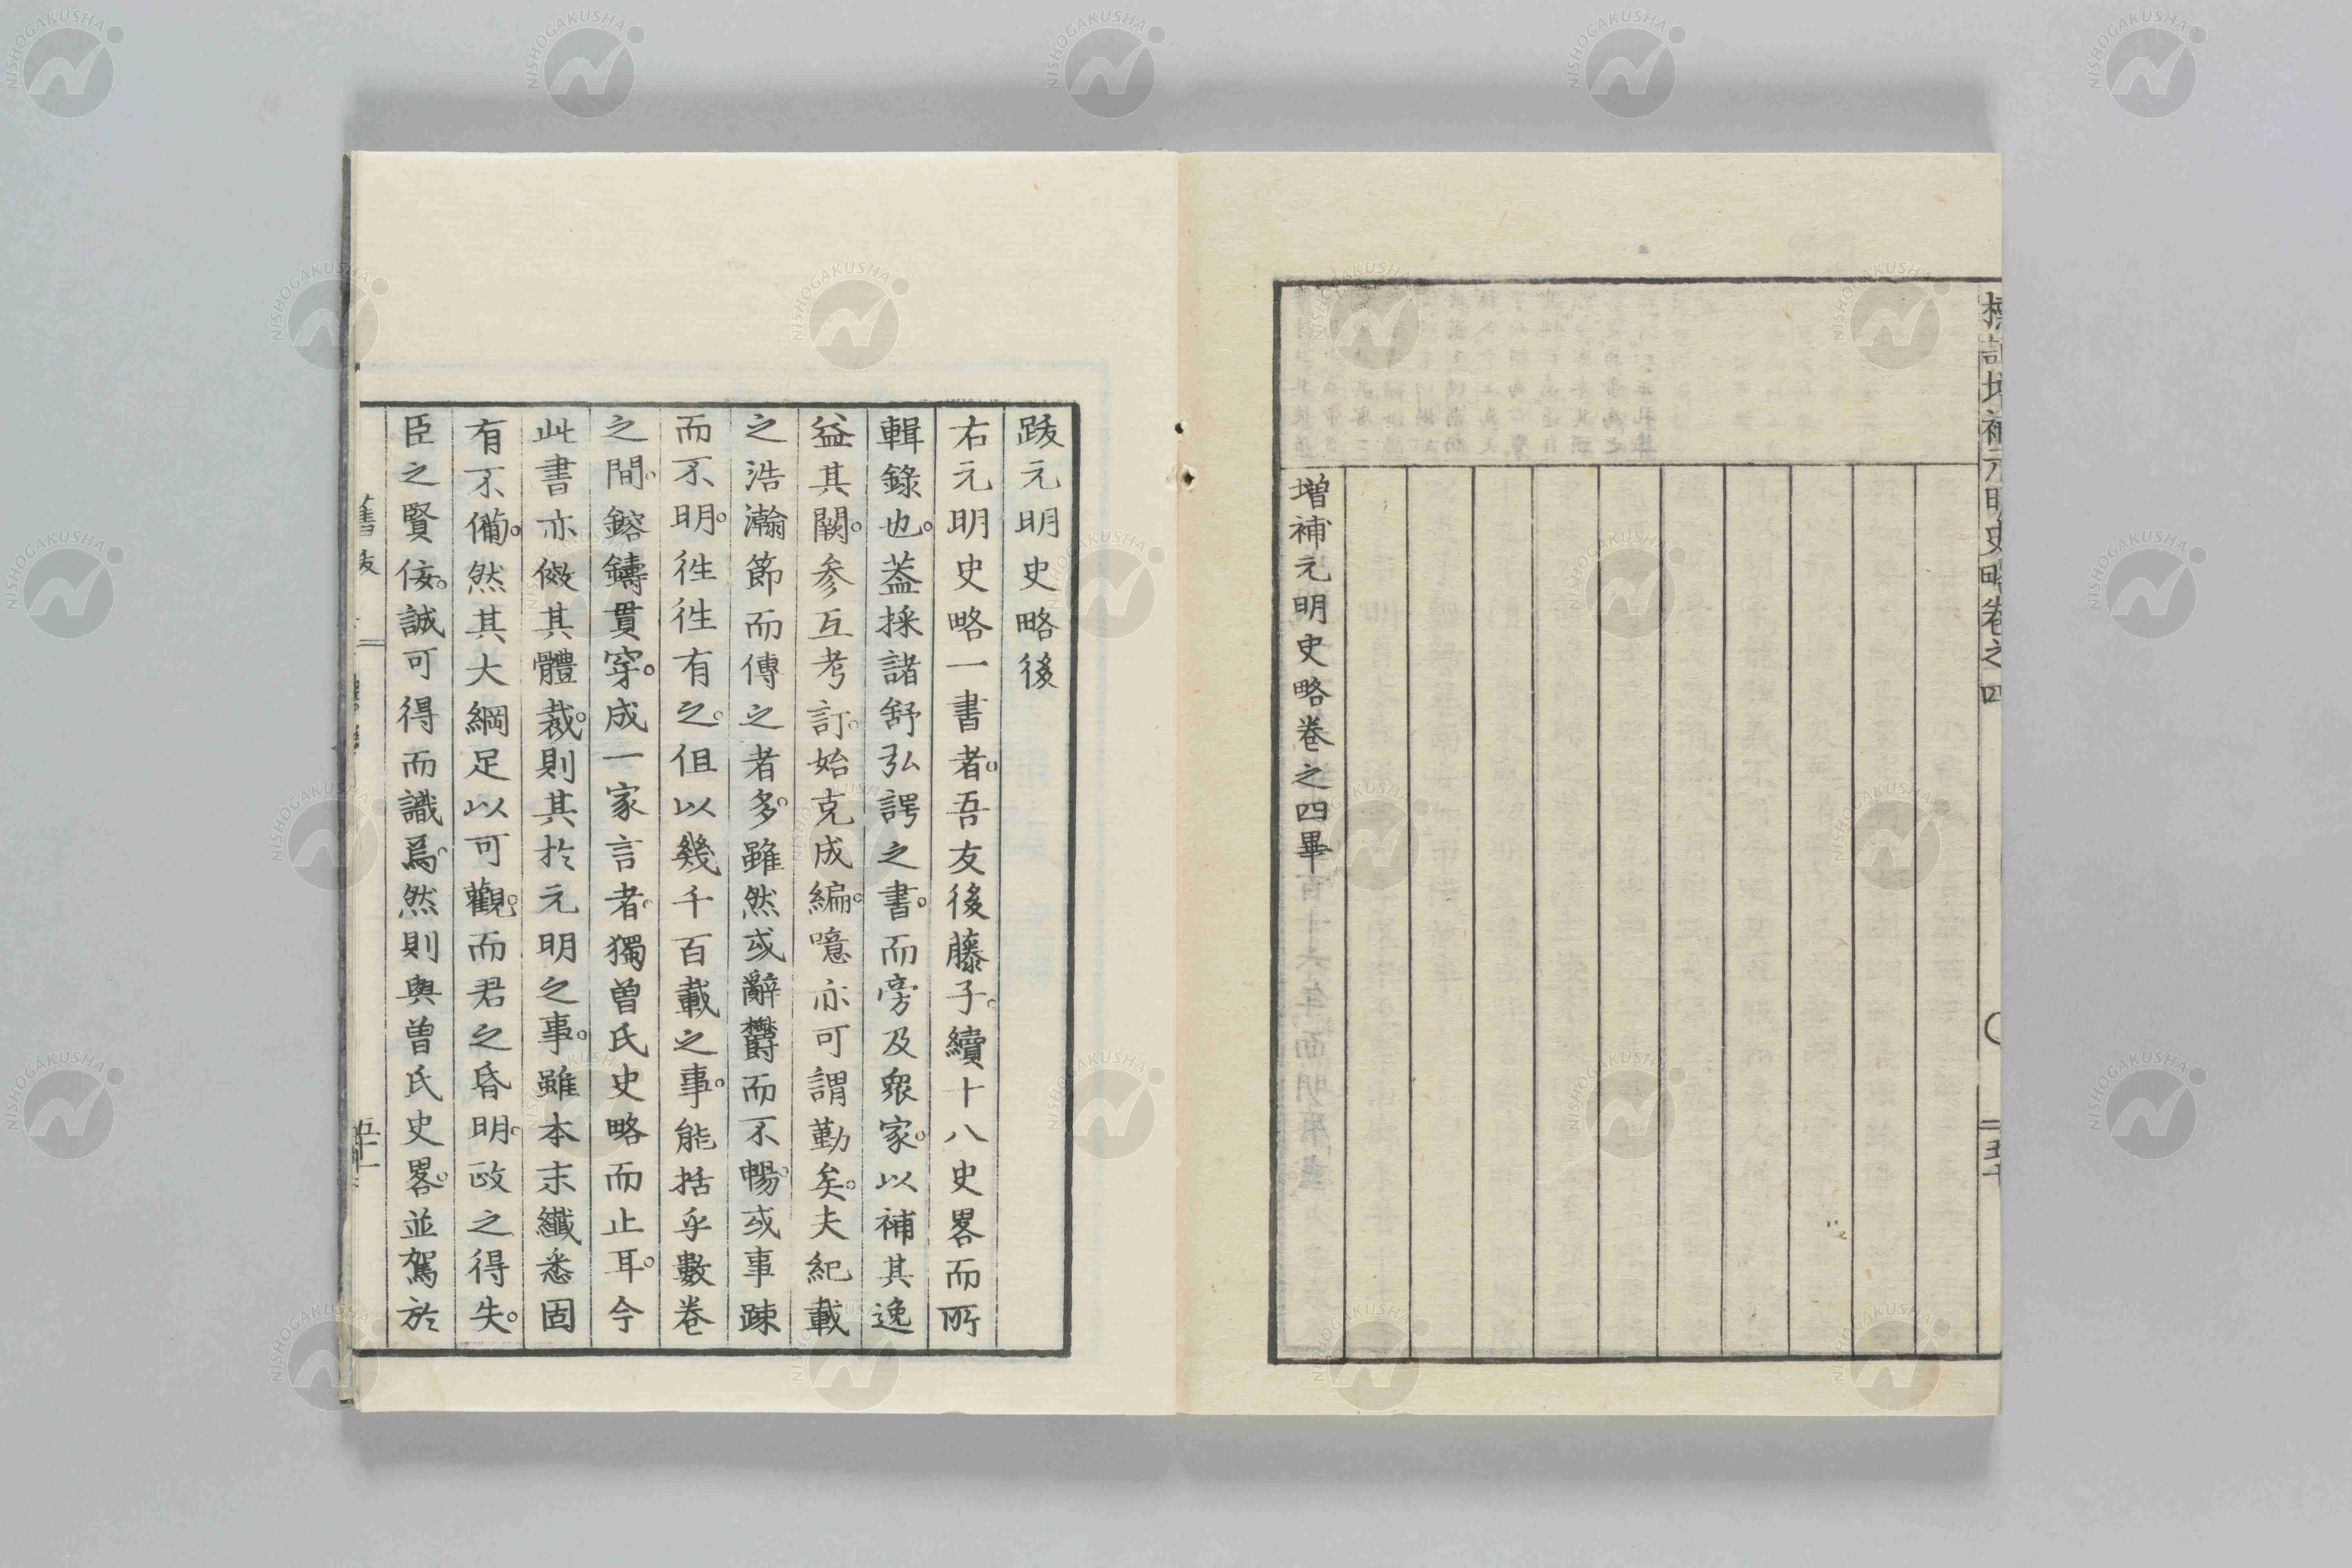 増補元明史略卷之四畢
跋元明史略後
右元明史略一書者。吾友後藤子。續十八史畧而所
輯錄也。蓋採諸舒弘諤之書。而旁及衆家。以補其逸
益其闕。參互考訂。始克成編。噫亦可謂勤矣。夫紀載
之浩瀚節而傳之者多。雖然或辭欝而不暢。或事踈
而不明。徃徃有之。但以幾千百載之事。能括乎數卷
之間。鎔鑄貫穿。成一家言者。獨曽氏史略而止耳。今
此書亦倣其體裁。則其於元明之事。雖本末纖悉固
有不備。然其大綱足以可觀。而君之昏明。政之得失。
臣之賢佞。誠可得而識焉。然則與曽氏史畧。並駕於
NISHOGAKUSHA